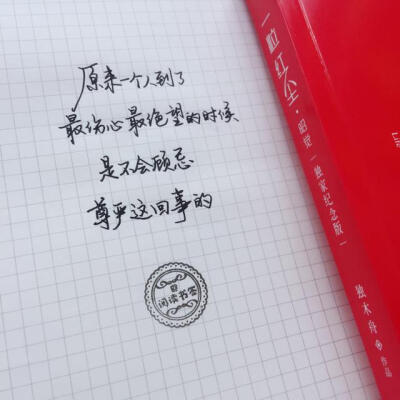 原来一个人到了
最伤心最绝望的时候
是不会顾忌
尊严这回事的
阅读书签
一粒红尘·昭觉—独家纪念版—
独木舟 作品